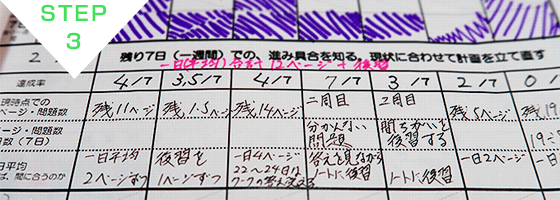 STEP
3
2
残り7日(一週間)での、進み具合を知る。現状に合わせて計画を立て直す
一日(平均)合計12ページ+復習
達成率 4/7 3,5/7 4/7 7/7 3/7 2/7 0/
現時点での
ページ・問題数 残11ページ 残1.5ページ 残14ページ 二周目 2周目 残5ページ 残19
ページ・問題
日数(7日) 分かんない問題 間ちがいを復習する 19÷
一日平均 一日平均 復習を 一日4ページ 答えを見ながら 一日2ページ 一日
ば、間に合うのか 2ページずつ 1ページずつ 22〜24日は ノートに復習 ノートに復習
ワークの答え